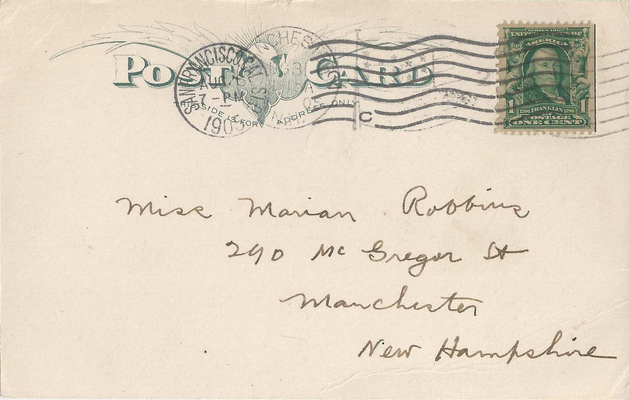 POSTAL CARD
THIS SIDE IS FOR ADDRESS ONLY
SAN FRANCISCO, CAL.
AUG
7-PM
1903
SERIES 1902
UNITED STATES OF
AMERICA
1 FRANKLIN 1
POSTAGE
ONE CENT
C
Miss Marian Robbins
290 Mc Gregor St
Manchester
New Hampshire